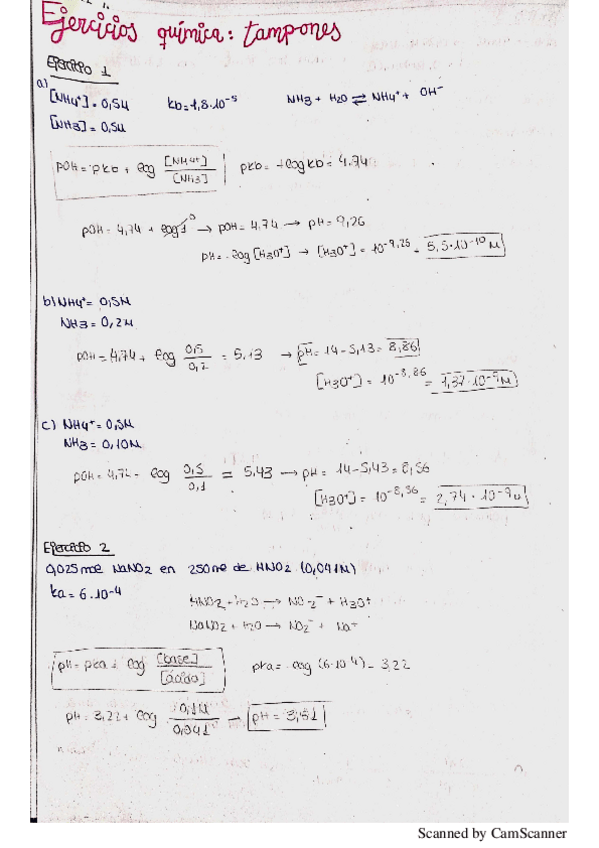 Ejercicios química: tampones
Ejercicio 1
a)
[NH4+] = 0,5M    kb = 1,8·10⁻⁵    NH3 + H2O ⇌ NH4+ + OH⁻
[NH3] = 0,5M
pOH = pkb + log [NH4+]/[NH3]    pkb = -logkb = 4.74
pOH = 4,74 + log1 ⁰ → pOH = 4.74 → pH = 9,26
pH = -log [H3O+] → [H3O+] = 10⁻⁹·²⁶ = 5,5·10⁻¹⁰ M
b) NH4+ = 0,5M
NH3 = 0,2M
pOH = 4,74 + log 0,5/0,2 = 5,13 → pH = 14 - 5,13 = 8,86
[H3O+] = 10⁻⁸·⁸⁶ = 1,37·10⁻⁹M
c) NH4+ = 0,5M
NH3 = 0,10M
pOH = 4,74 - log 0,5/0,1 = 5,43 → pH = 14 - 5,43 = 8,56
[H3O+] = 10⁻⁸·⁵⁶ = 2,74·10⁻⁹M
Ejercicio 2
0,025 mol NaNO2 en 250ml de HNO2 (0,041M)
ka = 6·10⁻⁴    HNO2 + H2O → NO2⁻ + H3O+
NaNO2 + H2O → NO2⁻ + Na+
pH = pka + log [base]/[ácido]    pka = -log (6·10⁻⁴) = 3,22
pH = 3,22 + log 0,1M/0,041 → pH = 3,61
Scanned by CamScanner